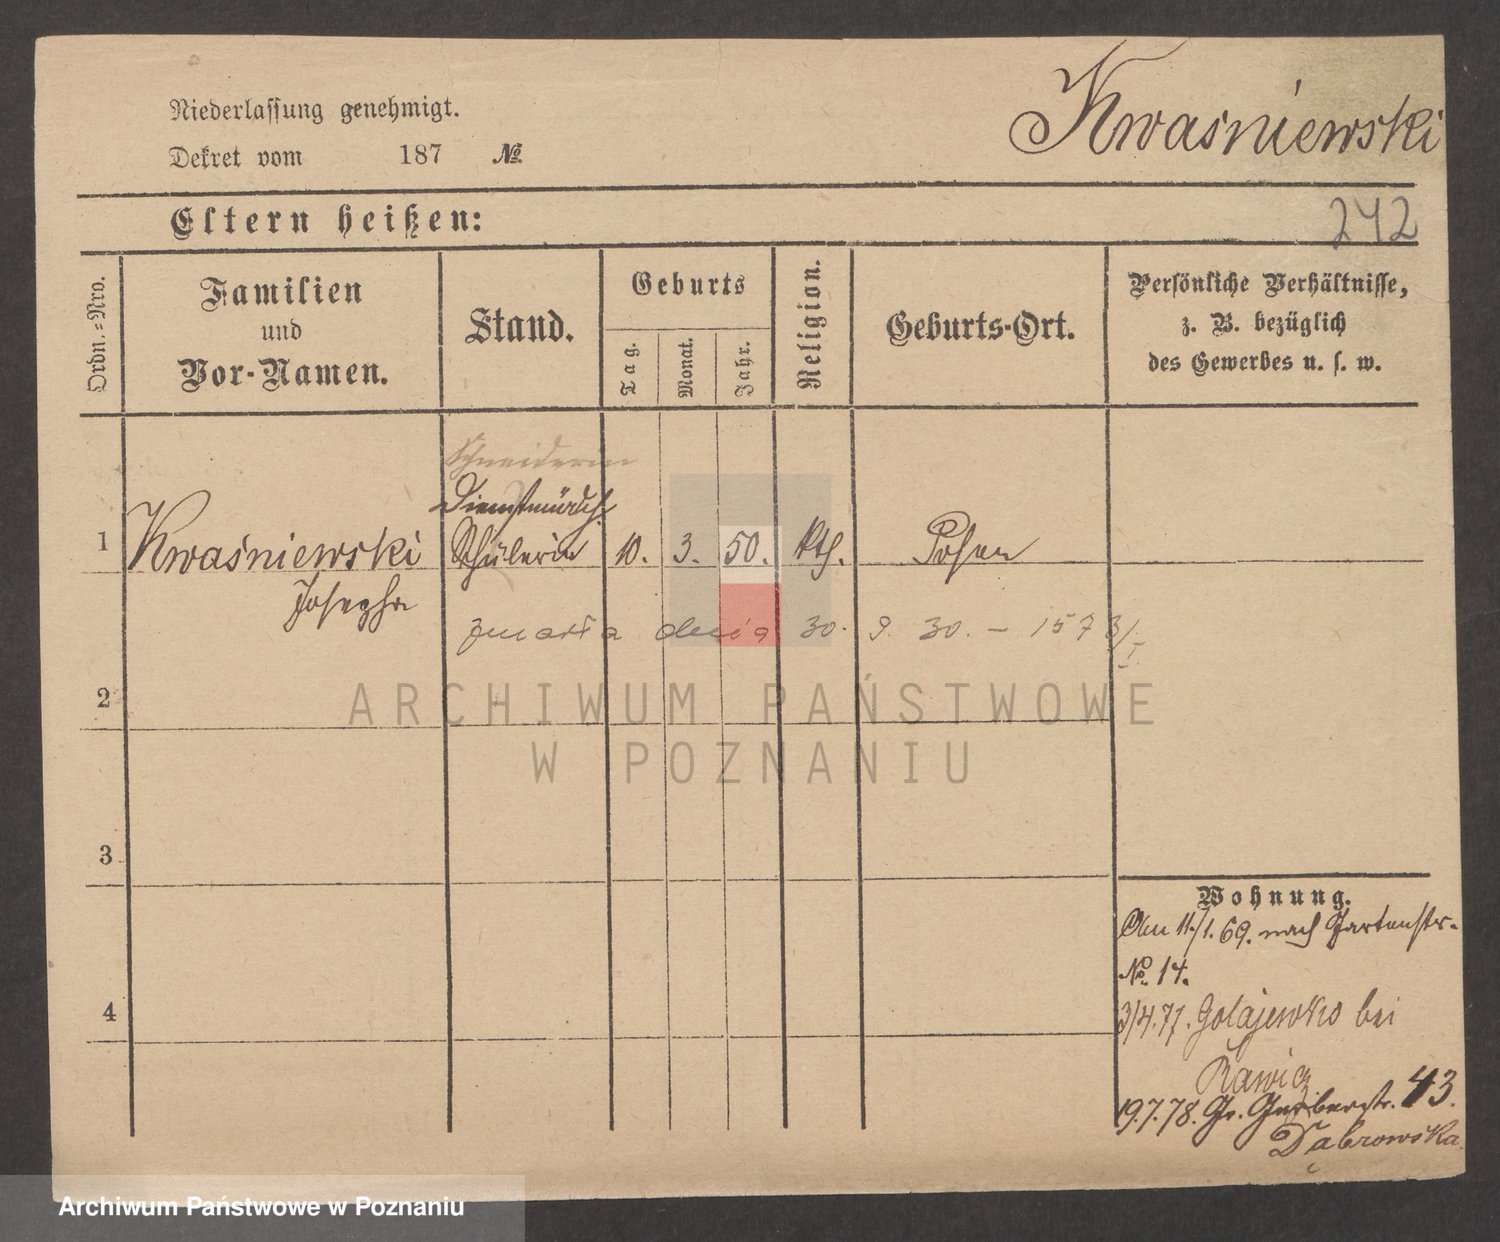 Kwaśniewski
Niederlassung genehmigt.
Dekret vom 187 №
Eltern heißen:
242
Ordn.=Nro.
Familien
und
Vor-Namen.
Stand.
Geburts
Tag.
Monat.
Jahr.
Religion.
Geburts-Ort.
Persönliche Verhältnisse,
z. B. bezüglich
des Gewerbes u. s. w.
Schneiderin
Dienstmädch.
1 Kwaśniewski Schülerin 10. 3. 50. kth. Posen
Josepha
zmarła dnia 30. 9. 30. – 1573/I.
2
ARCHIWUM PAŃSTWOWE
W POZNANIU
3
Wohnung.
Am 11./1. 69. nach Gartenstr.
No. 14.
4
3/4.77. Golajewko bei
Rawicz
19.7.78. Gr. Gerberstr. 43.
Dąbrowska
Archiwum Państwowe w Poznaniu